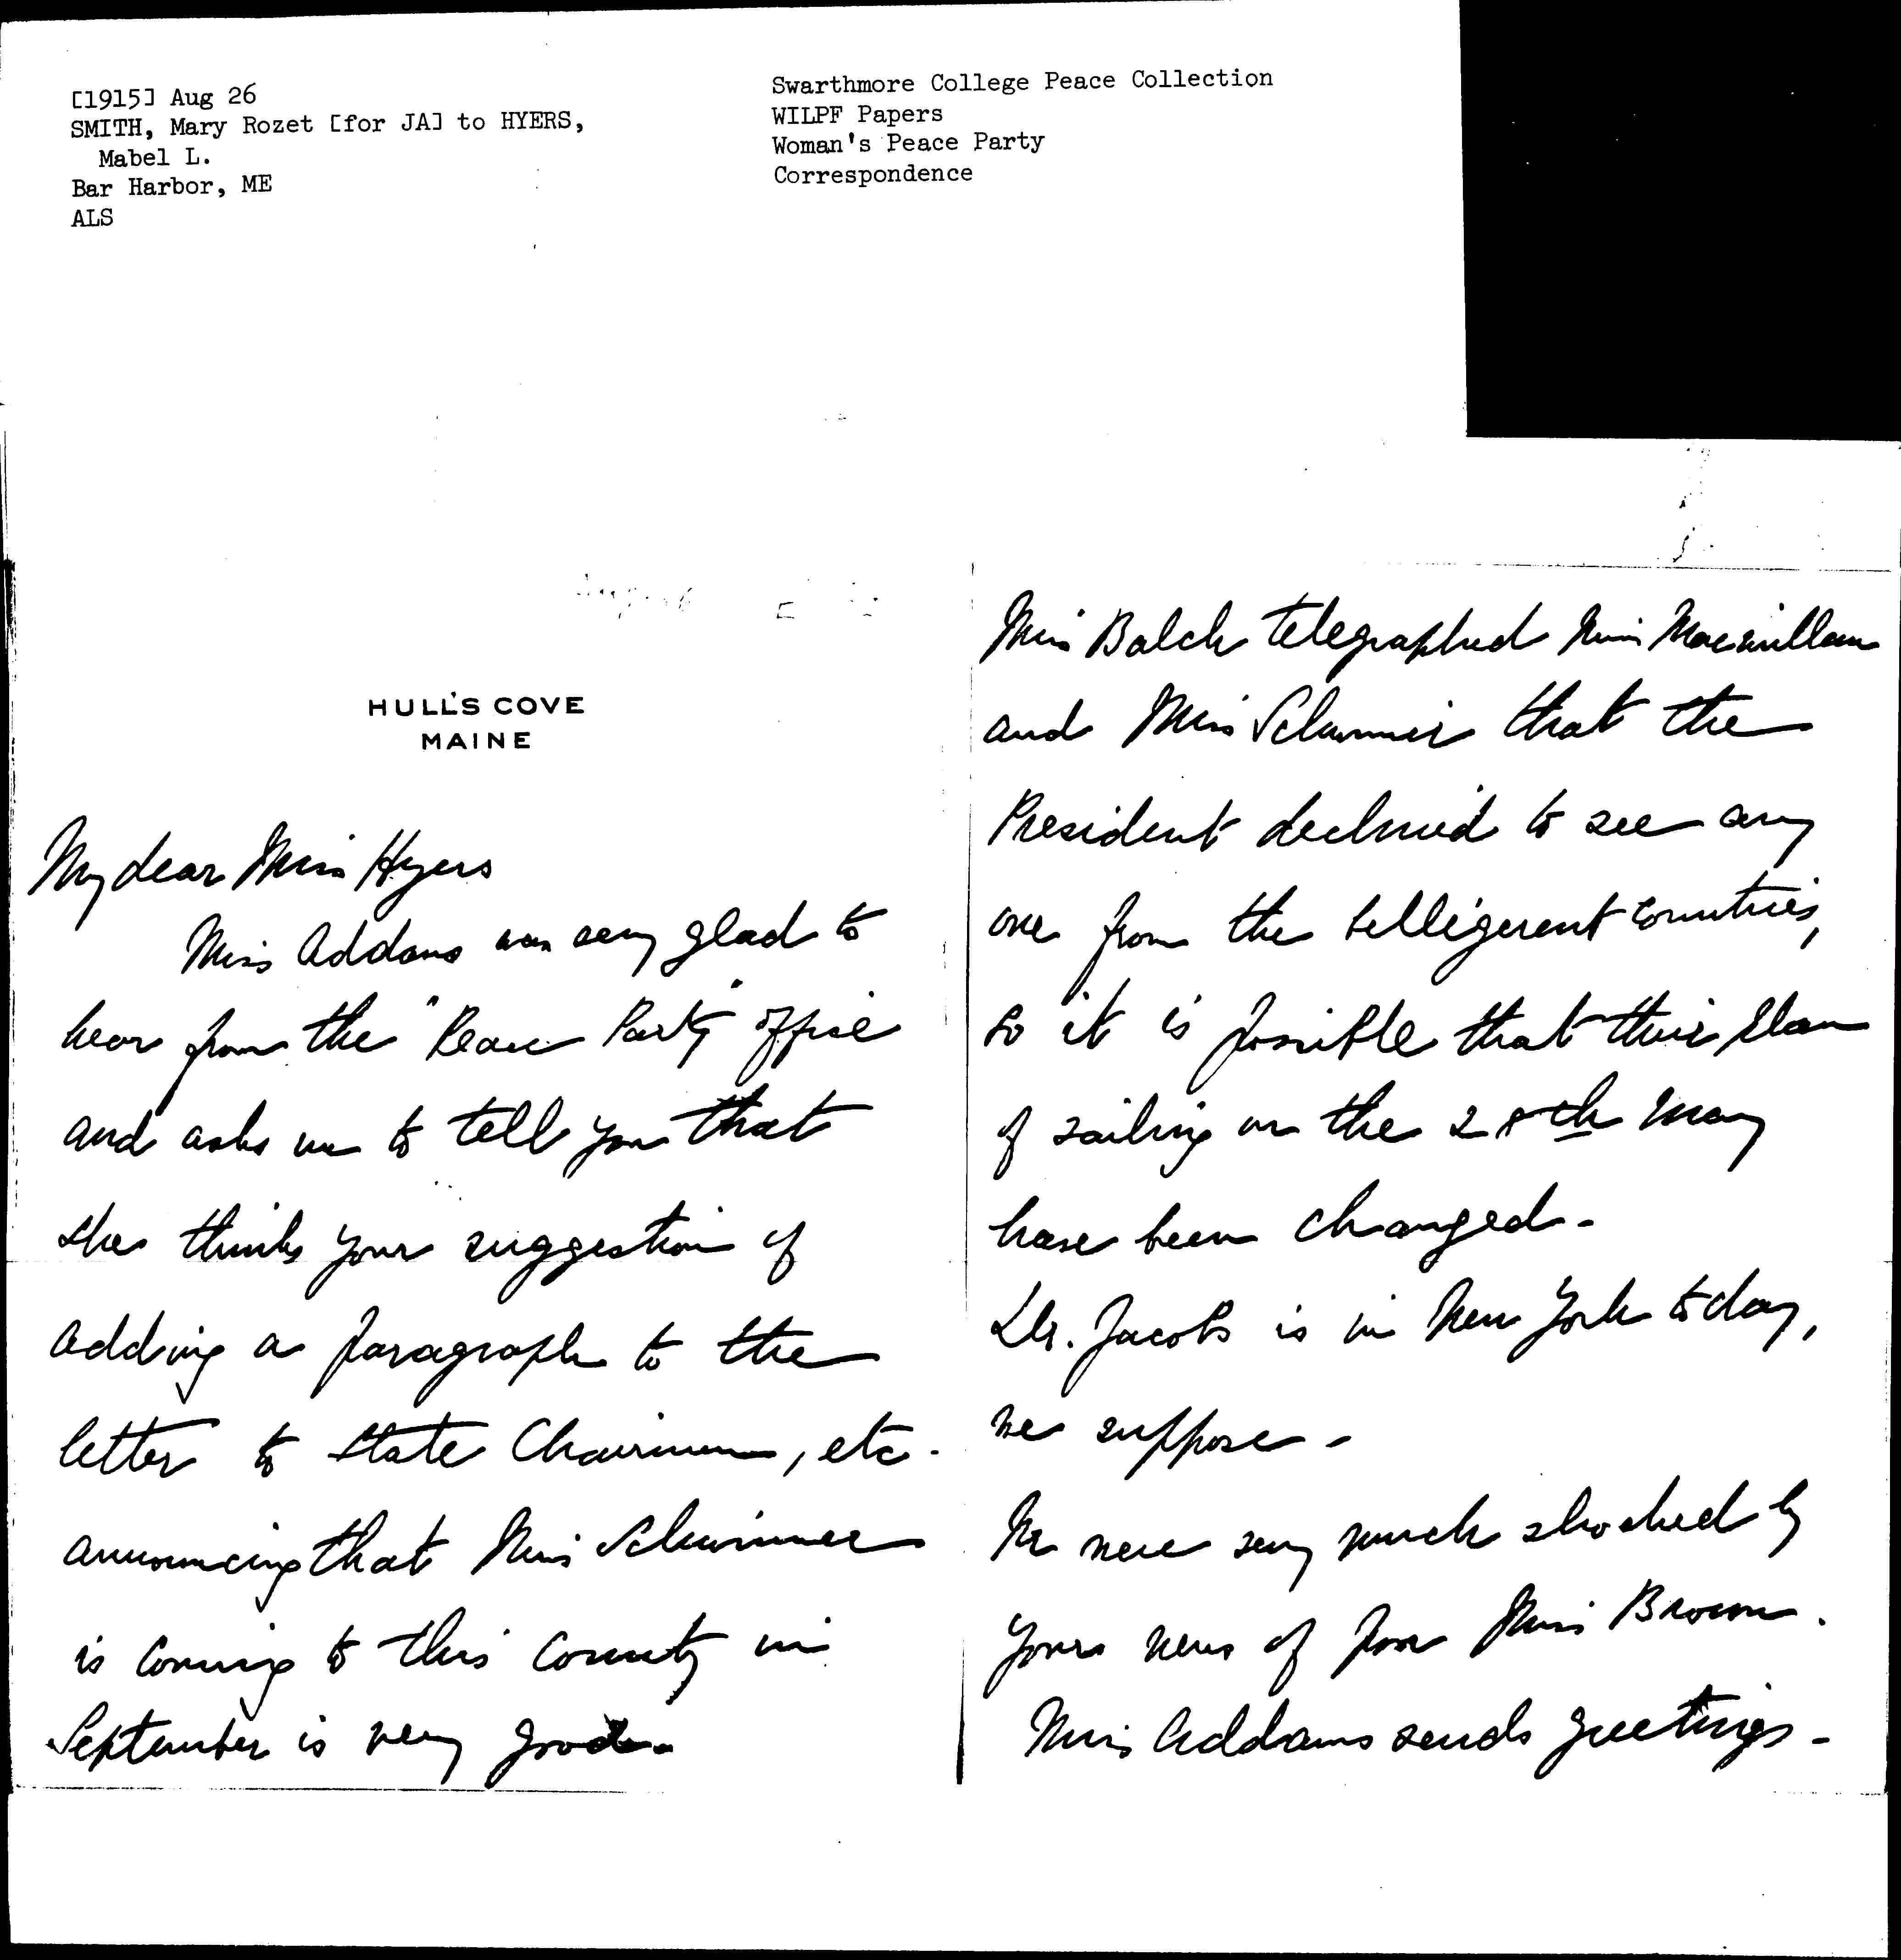 [1915] Aug 26
SMITH, Mary Rozet [for JA] to HYERS,
Mabel L.
Bar Harbor, ME
ALS
Swarthmore College Peace Collection
WILPF Papers
Woman's Peace Party
Correspondence
HULL'S COVE
MAINE
My dear Miss Hyers
Miss Addams was very glad to
hear from the "Peace Party" office
and asks me to tell you that
she thinks your suggestion of
adding a paragraph to the
letter to State Chairmen, etc.
announcing that Miss Schwimmer
is coming to this country in
September is very good.
Miss Balch telegraphed Miss Macmillan
and Miss Schwimmer that the
President declined to see any
one from the belligerent countries,
so it is possible that their plan
of sailing on the 28th may
have been changed -
Dr. Jacobs is in New York today,
we suppose -
We were very much shocked by
your news of poor Miss Brown.
Miss Addams sends greetings -